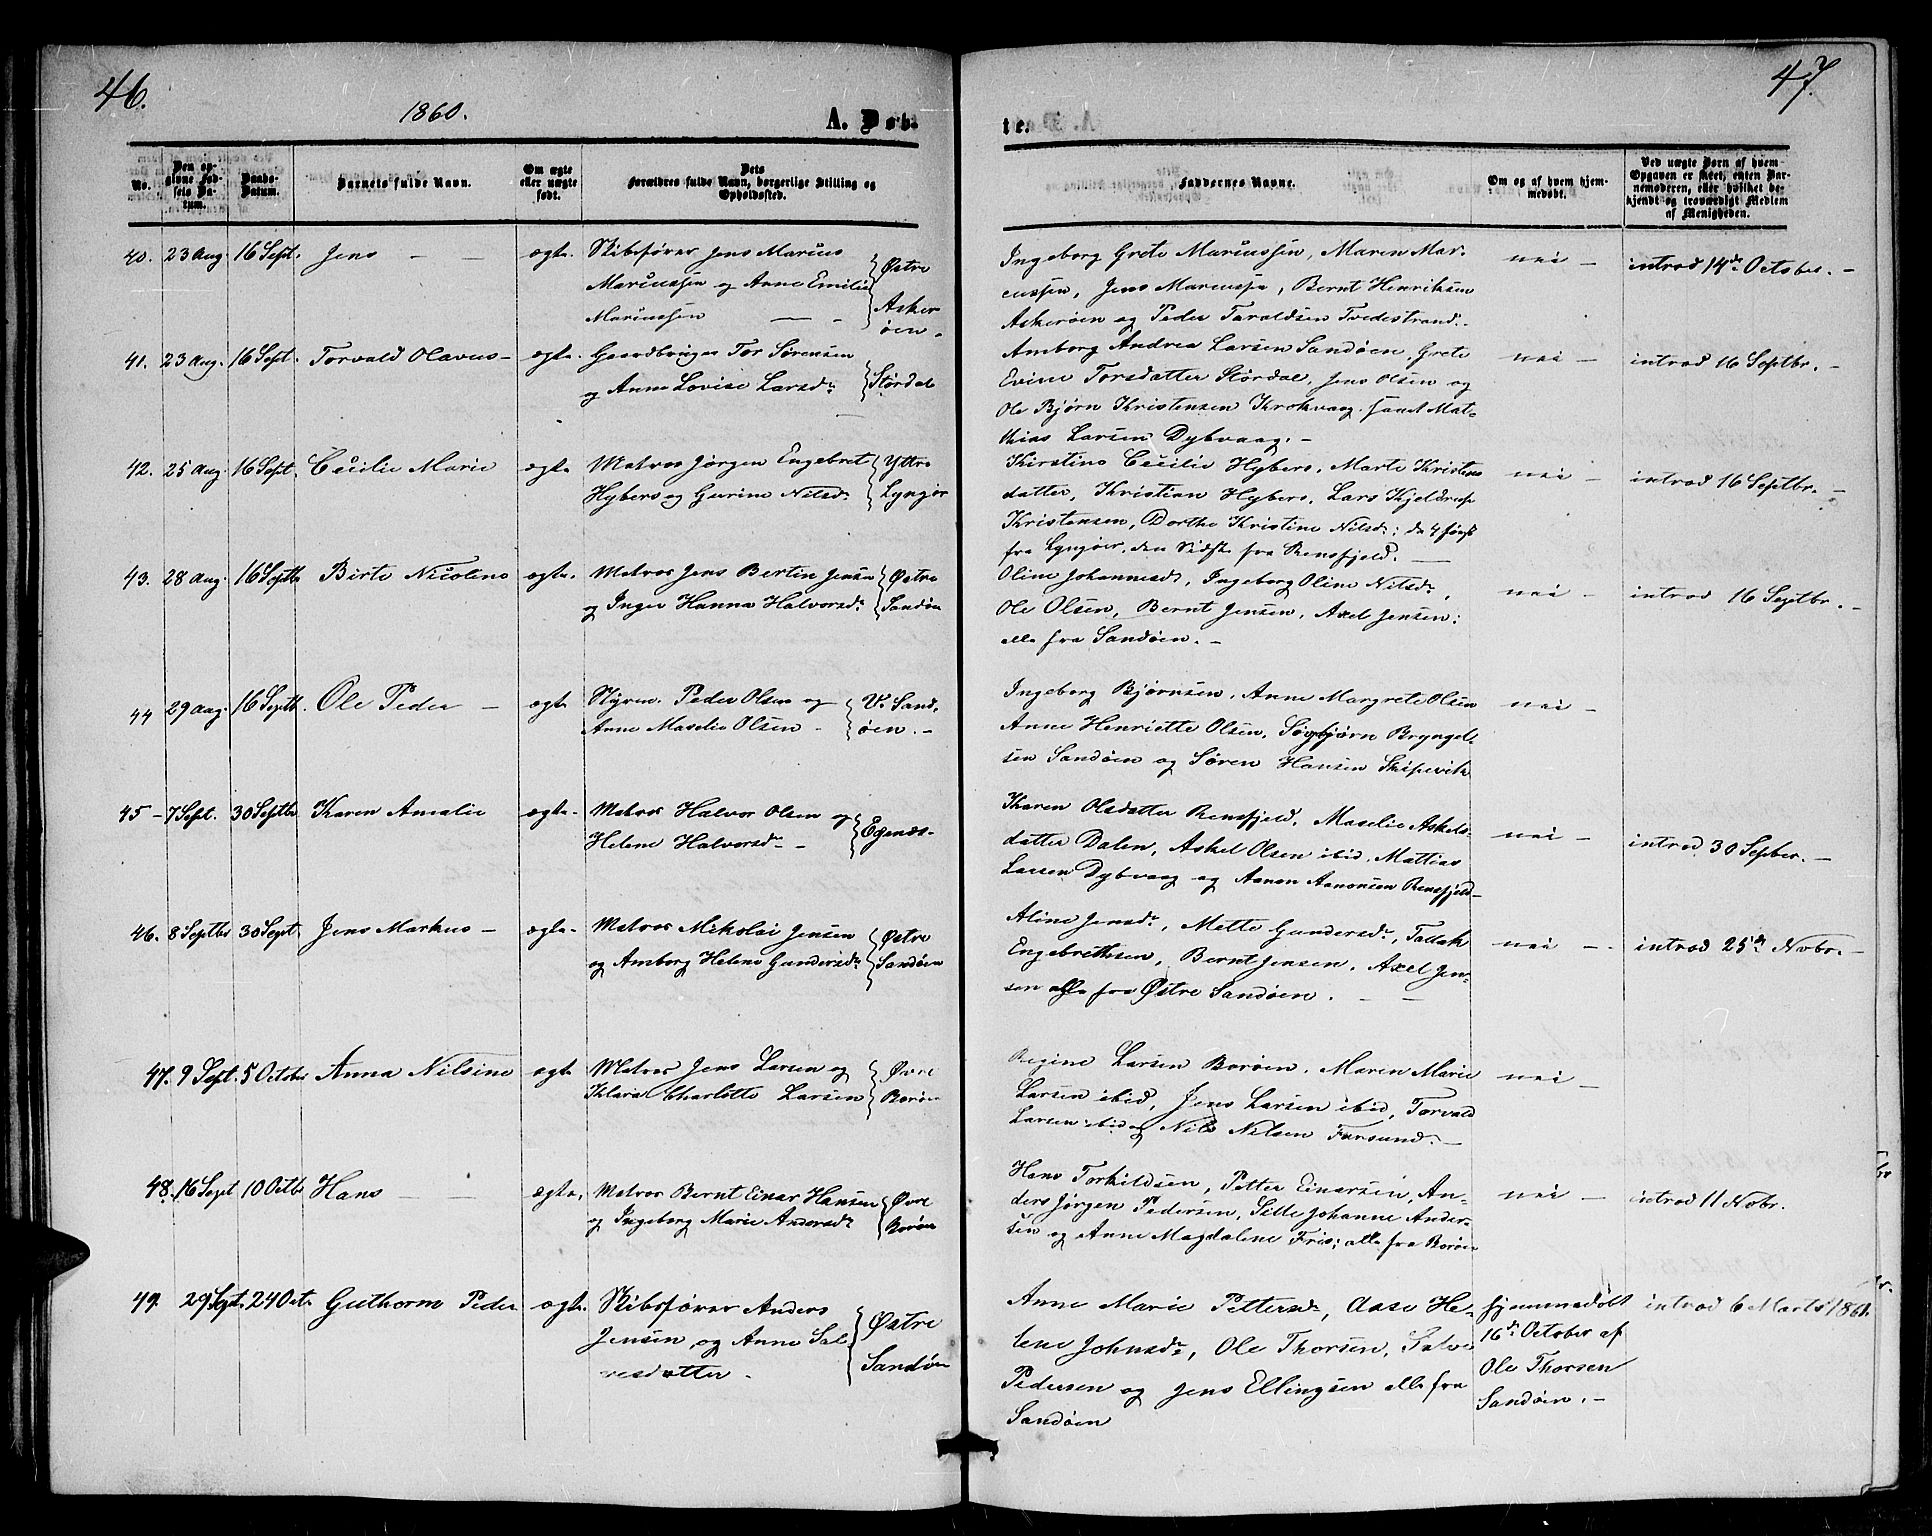 46.
1860.
A. Døb-
No.
Den opgivne Fødsels Datum.
Daabs-Datum.
Barnets fulde Navn.
Om ægte eller uægte født.
Dets Forældres fulde Navn, borgerlige Stilling og Opholdssted.
40. 23 Aug. 16 Sept. Jens — — ægte. Skibsfører Jens Marius Østre
Mariussen og Anne Emilie Asker
Mariussen — - øen.
41. 23 Aug. 16 Sept. Torvald Olavus - ægte. Gaardbruger Tor Sørensen
og Anne Lovise Larsd. Størdal
42. 25 Aug. 16 Sept. Cecilie Marie ægte Matros Jørgen Engebret Yttre
Hybers og Gurine Nilsd. Lyngør
43. 28 Aug. 16 Septb Birte Nicoline ægte. Matros Jens Bertin Jensen Østre
og Inger Hanna Halvorsd. Sandøen
44 29 Aug. 16 Septb. Ole Peder — ægte Styrm. Peder Olsen og V. Sand-
Anne Maselie Olsen - øen. -
45 - 7 Sept. 30 Septbr Karen Amalie ægte. Matros Halvor Olsen og
Helene Halvorsd. - Egenæs-
46. 8 Septbr 30 Sept. Jens Markus - ægte. Matros Nikolai Jensen Østre
og Amborg Helene Gundersd. Sandøen
47. 9 Sept. 5 October Anna Nilsine ægte Matros Jens Larsen og Øvre
Klara Charlotte Larsen Borøen
48. 16 Sept 10 Octb Hans — — ægte. Matros Bernt Einar Hansen Øvre
og Ingeborg Marie Andersd. Borøen
49. 29 Sept. 24 Oct. Guthorm Peder ægte. Skibsfører Anders Østre
Jensen og Anne Sal
vesdatter. Sandøen
47.
te.
Faddernes Navne.
Om og af hvem hjemmedøbt.
Ved uægte Born af hvem Opgaven er skeet, enten Barnemoderen, eller hvilket bekjendt og troværdigt Medlem af Menigheden.
Ingeborg Grete Mariussen, Maren Mar- nei - introd 14de October. -
cussen, Jens Marcussen, Bernt Henriksen
Askerøen og Peder Taraldsen Tvedestrand.
Amborg Andrea Larsen Sandøen, Grete nei - introd 16 Septbr. -
Evine Torsdatter Størdal, Jens Olsen og
Ole Bjørn Kristensen Krokvaag samt Mat-
thias Larsen Dybvaag. -
Kirstine Cecilie Hybers, Marte Kristens nei - introd 16 Septbr. -
datter, Kristian Hybers, Lars Kjeldrup
Kristensen, Dorthe Kristine Nilsd.; de 4 først
fra Lyngøer, den Sidste fra Rensfjeld. —
Oline Johannesd, Ingeborg Oline Nilsd., nei - introd 16 Septbr. -
Ole Olsen, Bernt Jensen, Axel Jensen;
alle fra Sandøen. -
Ingeborg Bjørnsen, Anne Margrete Olsen nei -
Anne Henriette Olsen, Sigbjørn Bryngel-
sen Sandøen og Søren Hansen Skipevik
Karen Olsdatter Rensfjeld, Maselie Askels- nei - introd 30 Sepber. -
datter Dalen, Askel Olsen ibid, Mattias
Larsen Dybvaag og Aanon Aanonsen Rensfjeld-
Aline Jensd., Mette Gundersd., Tallak nei - - introd 25de Nobr. -
Engebrettsen, Bernt Jensen, Axel Jen-
sen alle fra Østre Sandøen. - -
Regine Larsen Borøen, Maren Marie nei -
Larsen ibid, Jens Larsen ibid, Torvald
Larsen ibid og Nils Nilsen Farsund. -
Hans Torkildsen, Petter Einarsen, An- nei - introd 11 Nobr.
ders Jørgen Pedersen, Sille Johanne Ander-
sen og Anne Magdalene Friis; alle fra Borøen
Anne Marie Pettersd., Aase He- hjemmedøbt introd 6 Marts 1861.
lene Johnsd., Ole Thorsen, Salve 16de October af
Pedersen og Jens Ellingsen alle fra Ole Thorsen
Sandøen Sandøen. -